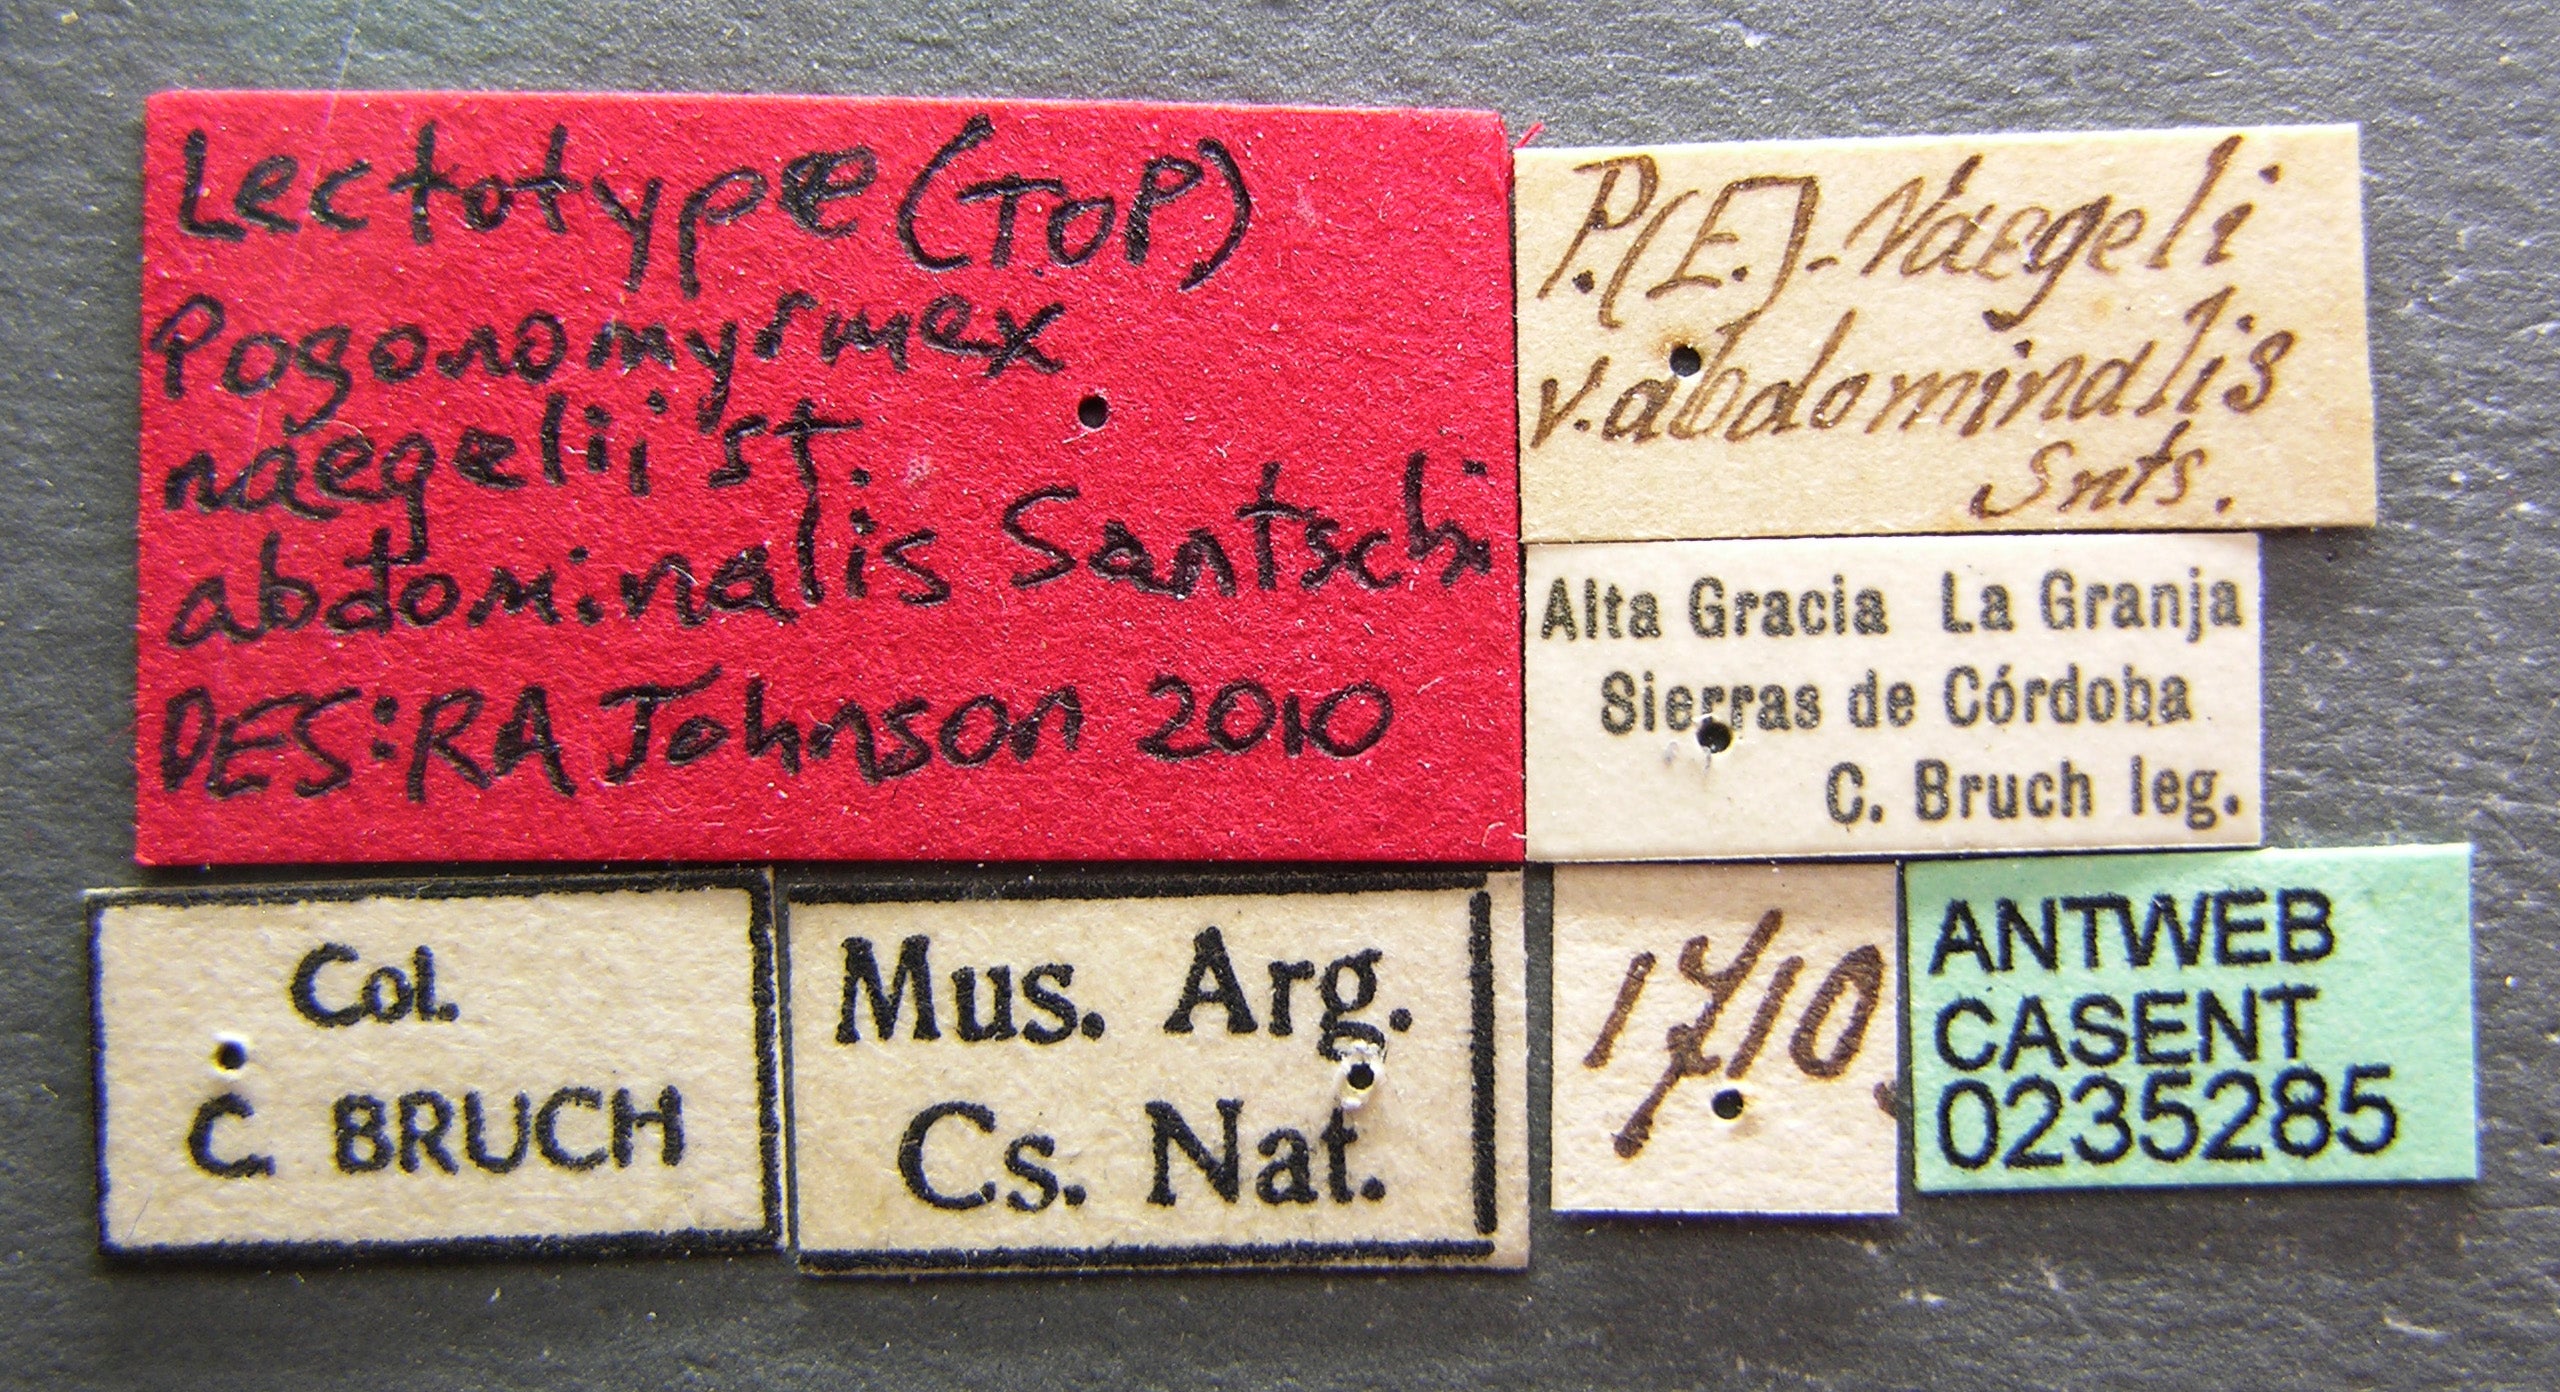 Lectotype (TOP)
Pogonomyrmex
naegelii st.
abdominalis Santschi
DES: RA Johnson 2010
P.(E.)-Naegeli
v. abdominalis
Snts.
Alta Gracia La Granja
Sierras de Córdoba
C. Bruch leg.
Col.
C. BRUCH
Mus. Arg.
Cs. Nat.
1710.
ANTWEB
CASENT
0235285